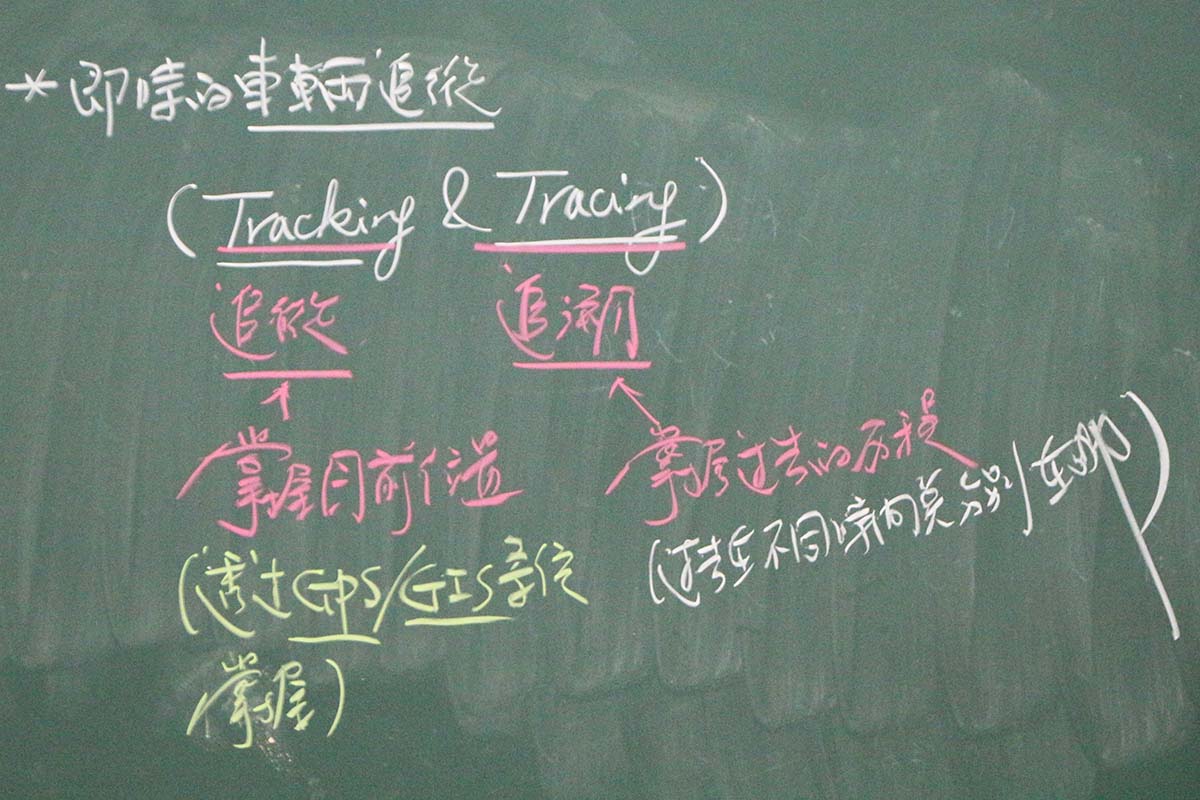 *即時的車輛追蹤
(Tracking & Tracing)
追蹤
追溯
掌握目前位置
掌握过去的历程
(透过GPS/GIS定位
掌握)
(过去在不同時间点分別在哪)